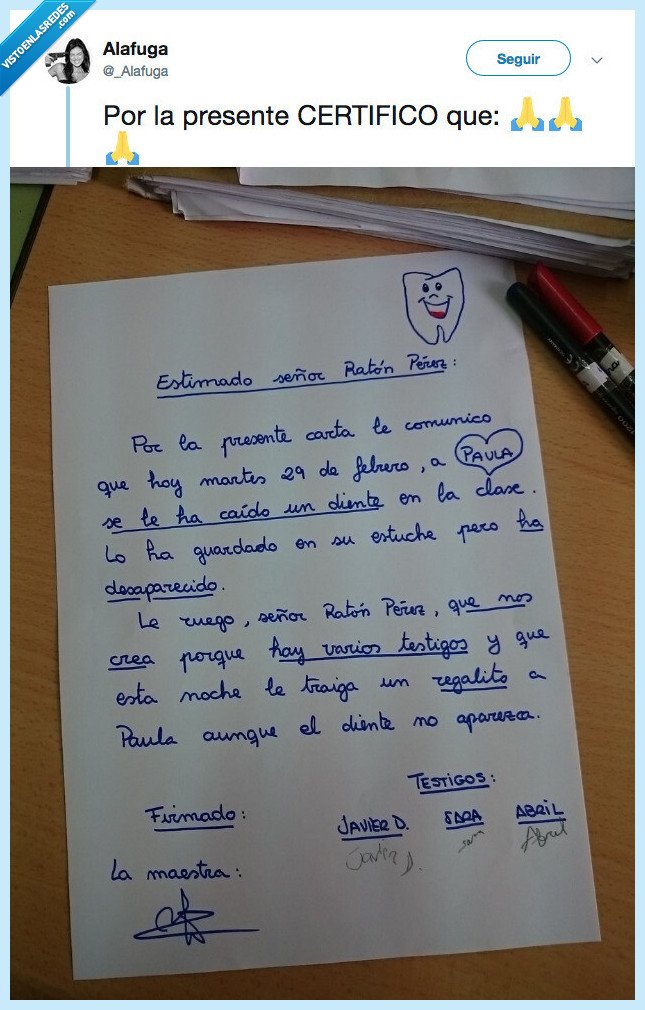 VISTOENLASREDES
.com
Alafuga
@_Alafuga
Seguir
Por la presente CERTIFICO que: 🙏🙏
🙏
Estimado señor Ratón Pérez:
Por la presente carta le comunico
que hoy martes 29 de febrero, a PAULA
se le ha caído un diente en la clase.
Lo ha guardado en su estuche pero ha
desaparecido.
Le ruego, señor Ratón Pérez, que nos
crea porque hay varios testigos y que
esta noche le traiga un regalito a
Paula aunque el diente no aparezca.
TESTIGOS:
Firmado:
JAVIER D. SARA ABRIL
Javier D. Sara Abril
La maestra: